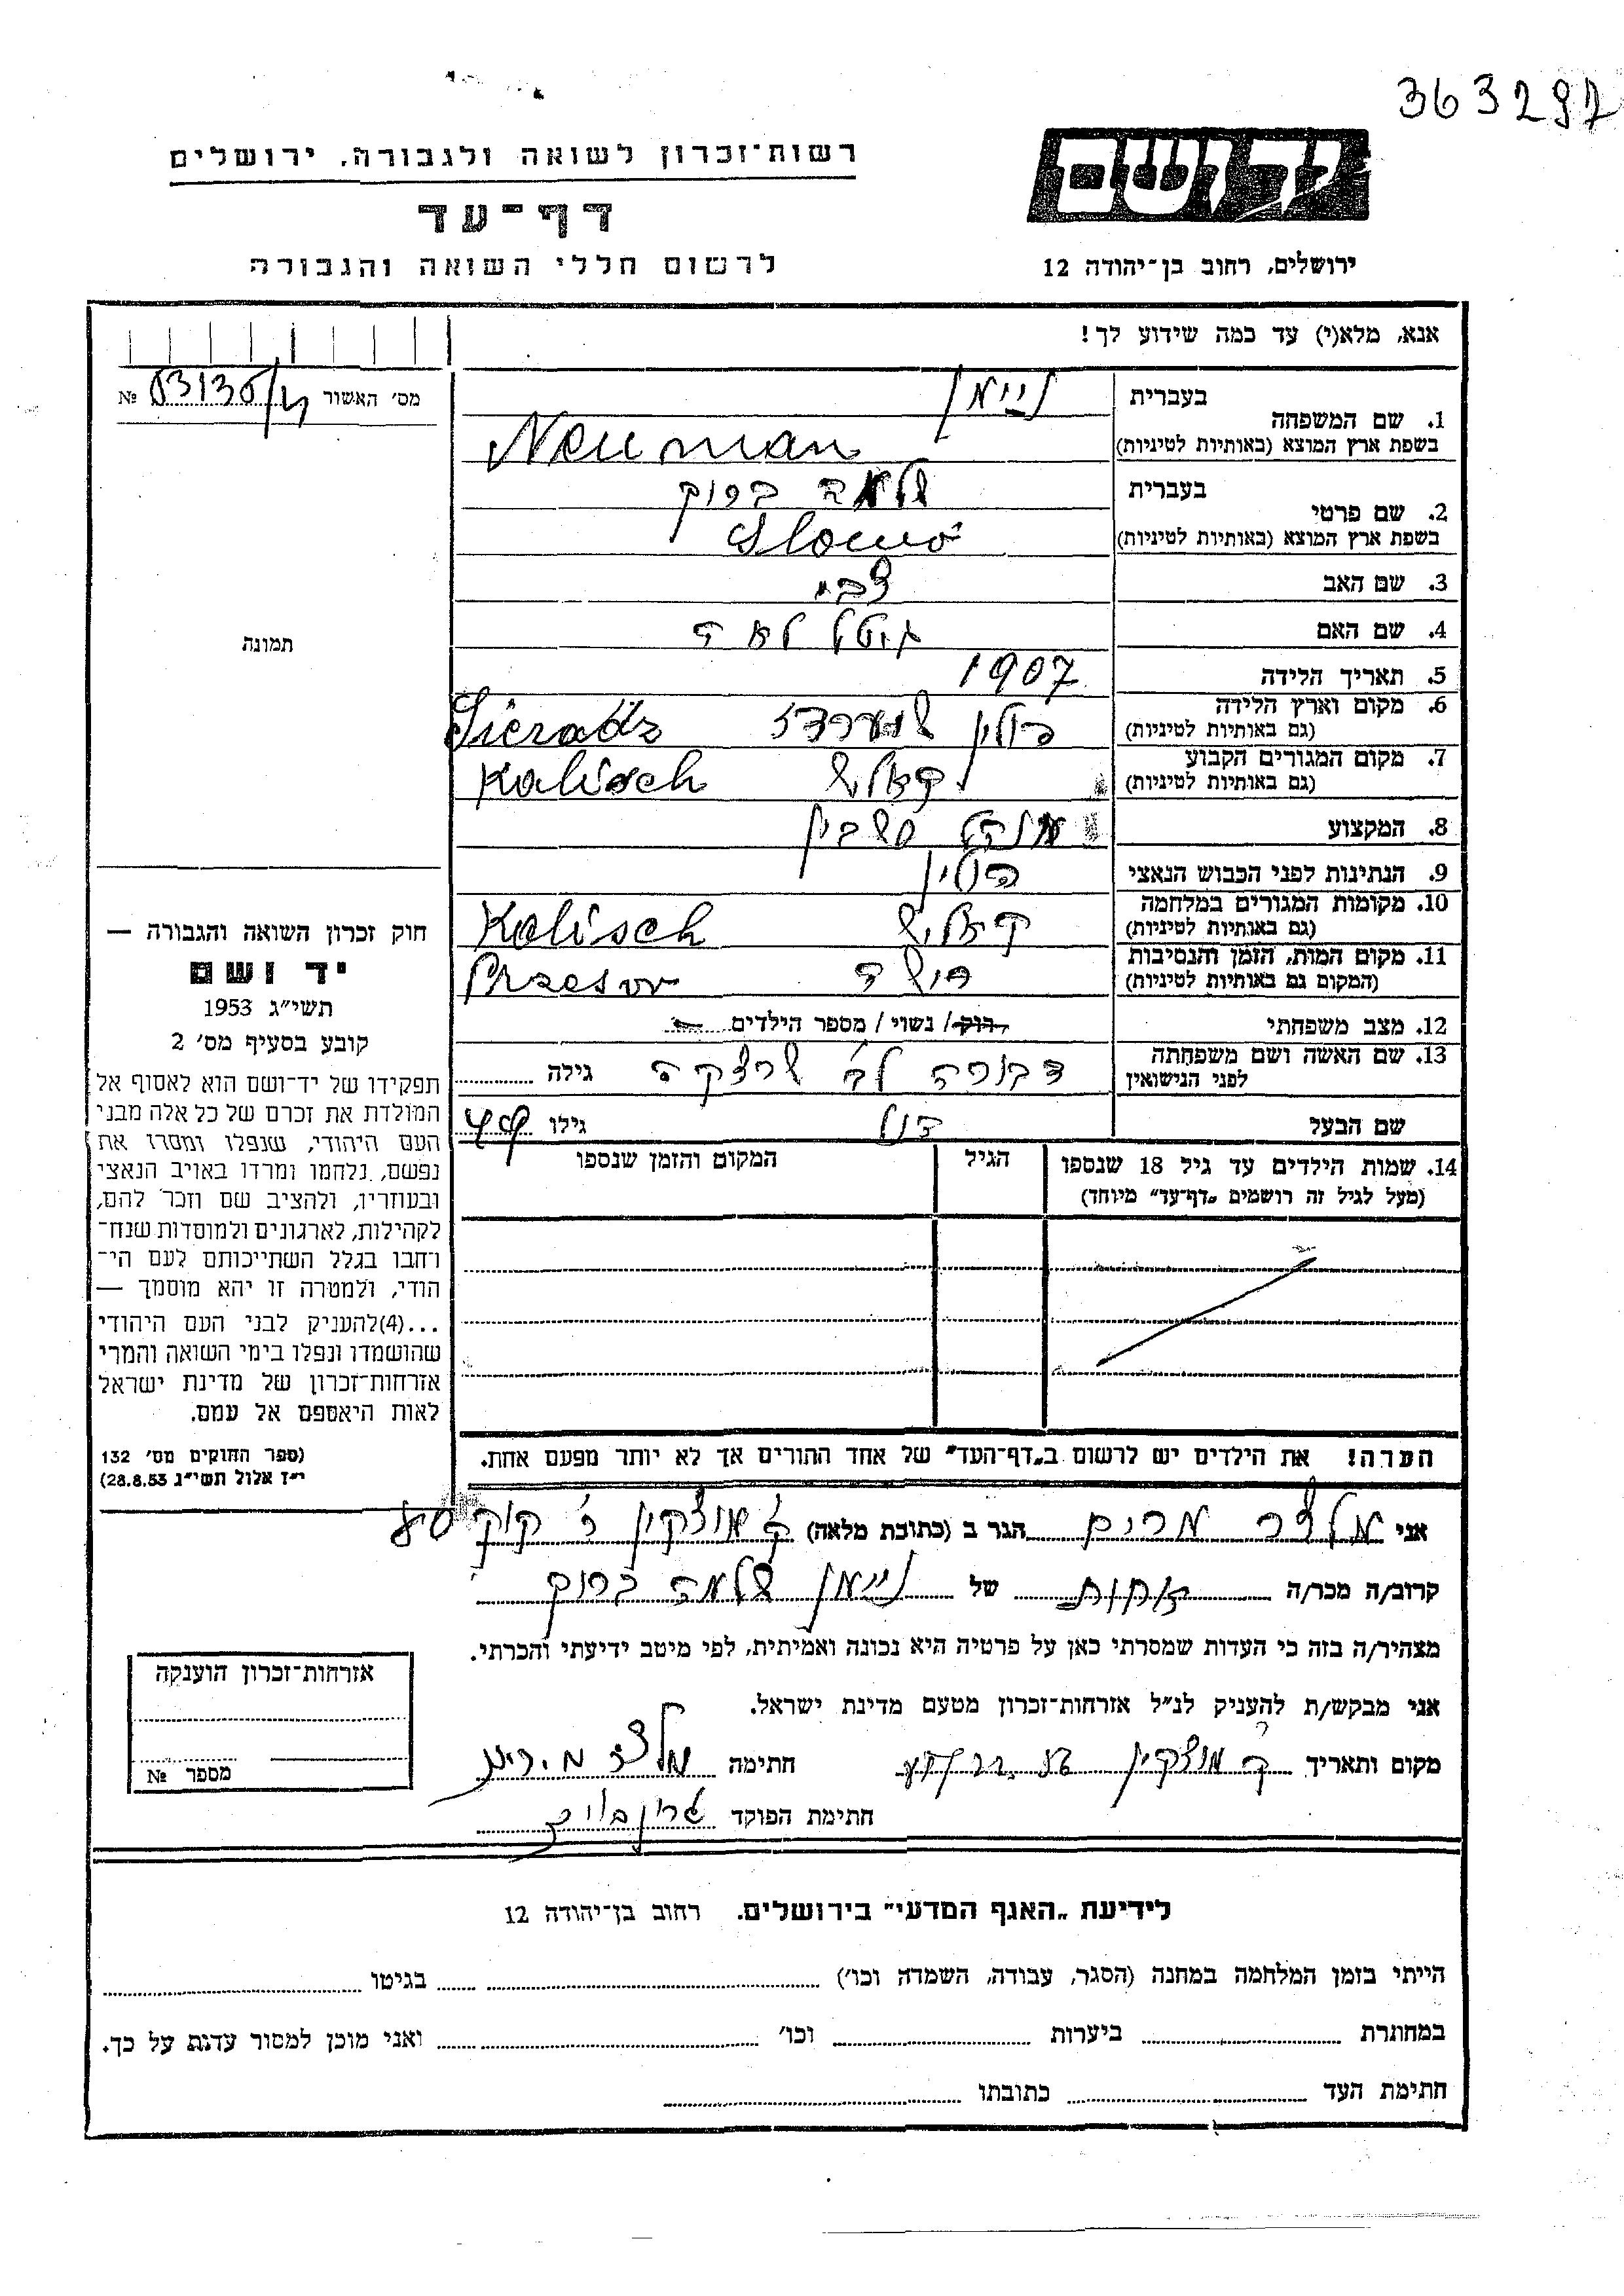 363297
רשות־זכרון לשואה ולגבורה, ירושלים
דף־עד
לרשום חללי השואה והגבורה
יד ושם
ירושלים, רחוב בן־יהודה 12
אנא, מלא(י) עד כמה שידוע לך!
מס' האשור №
1. שם המשפחה
בעברית ניימן
בשפת ארץ המוצא (באותיות לטיניות) Neuman
2. שם פרטי
בעברית שלמה ברוך
בשפת ארץ המוצא (באותיות לטיניות) Slomo
3. שם האב צבי
4. שם האם גיטל לאה
5. תאריך הלידה 1907
6. מקום וארץ הלידה
(גם באותיות לטיניות) פולין Sieradz
7. מקום המגורים הקבוע
(גם באותיות לטיניות) קאליש Kalisch
8. המקצוע
9. הנתינות לפני הכבוש הנאצי פולין
10. מקומות המגורים במלחמה
(גם באותיות לטיניות) קאליש Kolisch
11. מקום המות, הזמן והנסיבות
(המקום גם באותיות לטיניות)
12. מצב משפחתי רוק / נשוי / מספר הילדים
13. שם האשה ושם משפחתה
לפני הנישואין דבורה לב' גילה
שם הבעל גילו
14. שמות הילדים עד גיל 18 שנספו
(מעל לגיל זה רושמים „דף־עד” מיוחד)
הגיל
המקום והזמן שנספו
תמונה
חוק זכרון השואה והגבורה —
יד ושם
תשי״ג 1953
קובע בסעיף מס' 2
תפקידו של יד־ושם הוא לאסוף אל
המולדת את זכרם של כל אלה מבני
העם היהודי, שנפלו ומסרו את
נפשם, נלחמו ומרדו באויב הנאצי
ובעוזריו, ולהציב שם וזכר להם,
לקהילות, לארגונים ולמוסדות שנח־
רבו בגלל השתייכותם לעם הי־
הודי, ולמטרה זו יהא מוסמך —
...(4)להעניק לבני העם היהודי
שהושמדו ונפלו בימי השואה והמרי
אזרחות־זכרון של מדינת ישראל
לאות היאספם אל עמם.
(ספר החוקים מס' 132
י״ז אלול תשי״ג 28.8.53)
הערה! את הילדים יש לרשום ב„דף־העד” של אחד ההורים אך לא יותר מפעם אחת.
אני מלצר מרים הגר ב (כתובת מלאה) ק' מוצקין
קרוב/ה מכר/ה אחות של ניימן שלמה ברוך
מצהיר/ה בזה כי העדות שמסרתי כאן על פרטיה היא נכונה ואמיתית, לפי מיטב ידיעתי והכרתי.
אני מבקש/ת להעניק לנ״ל אזרחות־זכרון מטעם מדינת ישראל.
מקום ותאריך ק מוצקין חתימה מלצר מרים
חתימת הפוקד
אזרחות־זכרון הוענקה
מספר №
לידיעת „האגף המדעי” בירושלים. רחוב בן־יהודה 12
הייתי בזמן המלחמה במחנה (הסגר, עבודה, השמדה וכו') בגיטו
במחתרת ביערות וכו' ואני מוכן למסור עדות על כך.
חתימת העד כתובתו